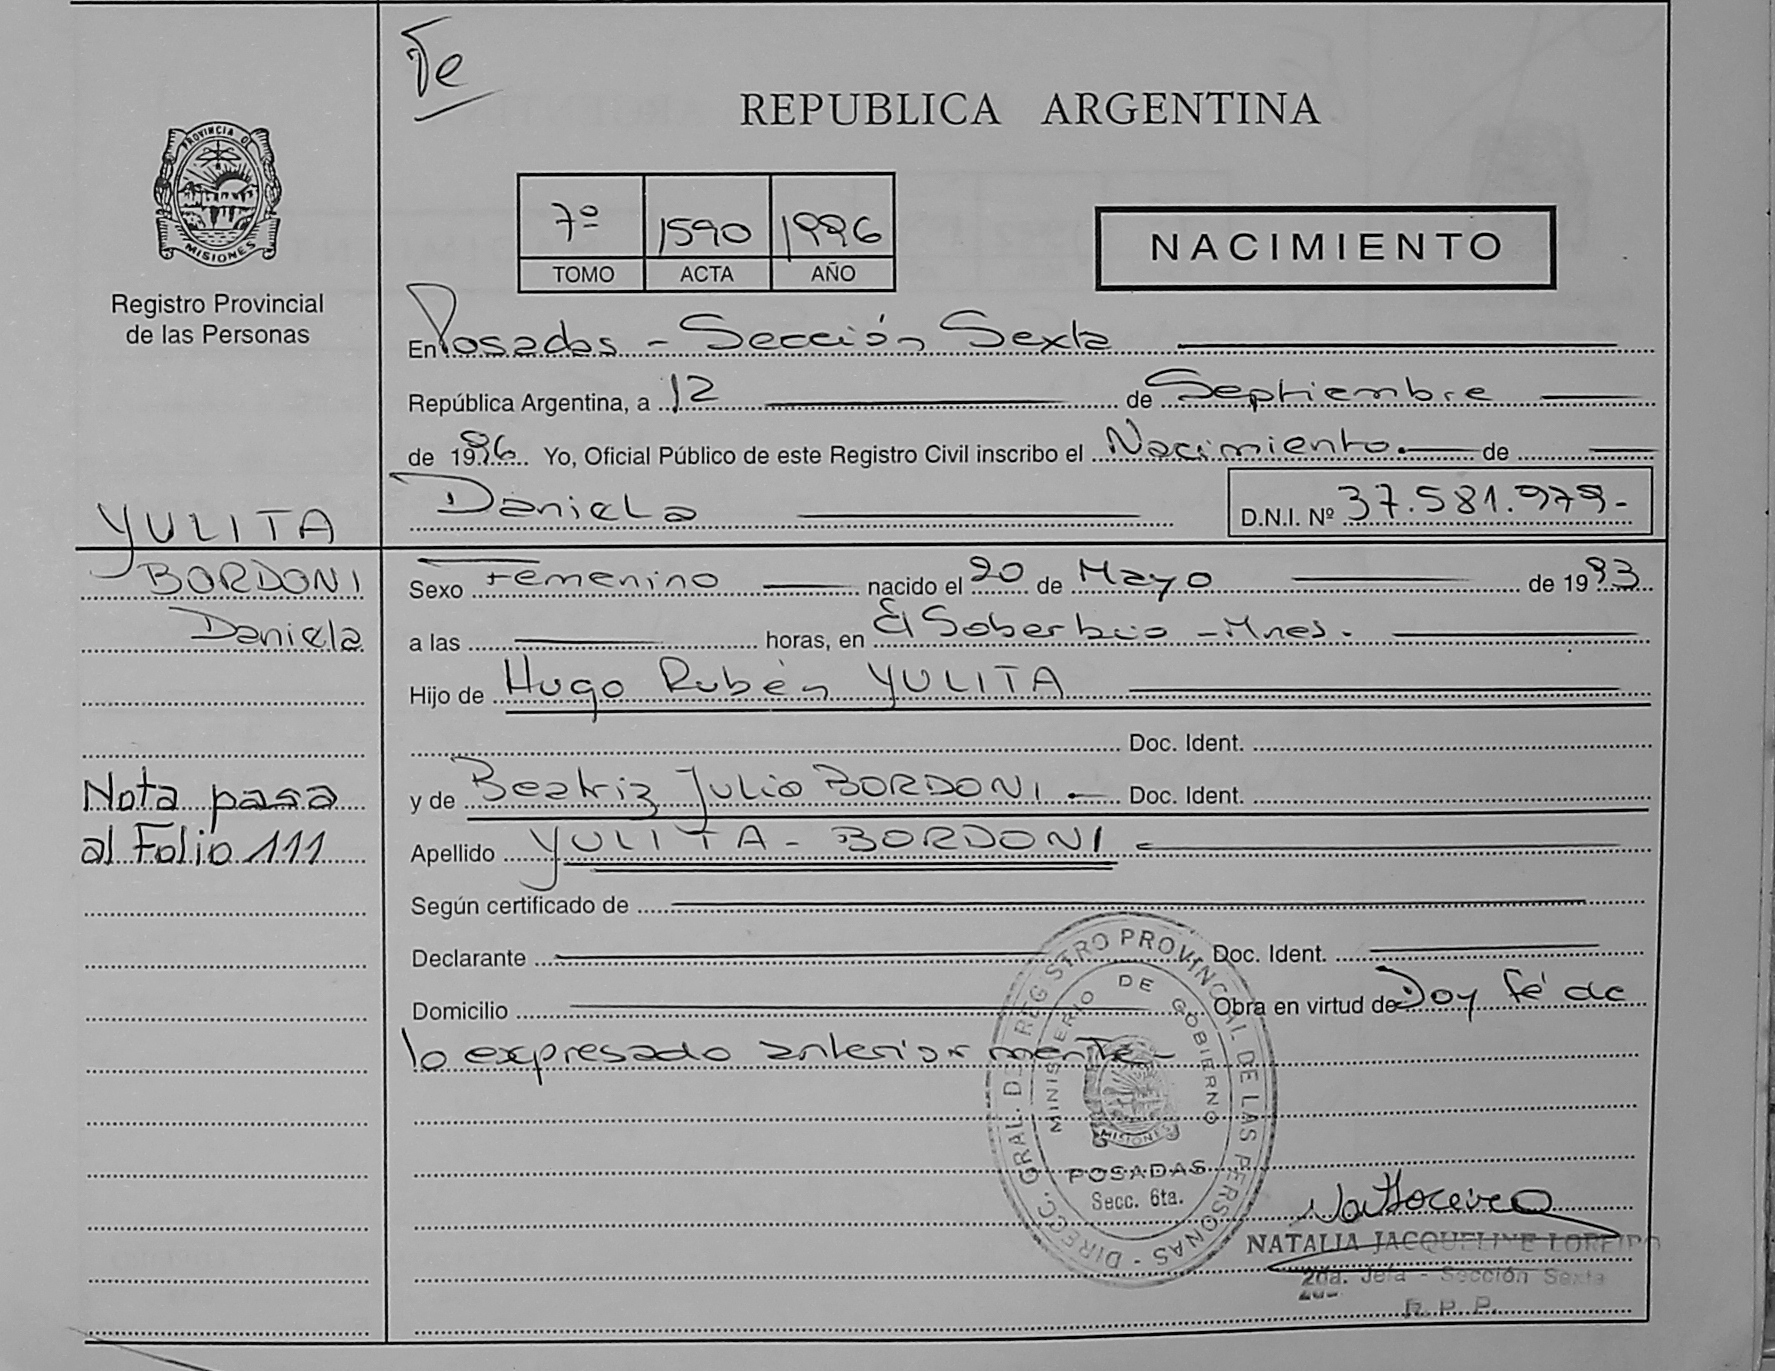 Te
REPUBLICA ARGENTINA
PROVINCIA DE
MISIONES
7º 1590 1996
TOMO ACTA AÑO
NACIMIENTO
Registro Provincial
de las Personas
En Posadas - Sección Sexta
República Argentina, a 12 de Septiembre
de 1996 Yo, Oficial Público de este Registro Civil inscribo el Nacimiento. de
Daniela D.N.I. Nº 37.581.979-
YULITA
BORDONI
Daniela
Sexo Femenino nacido el 20 de Mayo de 1993
a las horas, en El Soberbio - Mnes.
Hijo de Hugo Rubén YULITA
Doc. Ident.
y de Beatriz Julio BORDONI Doc. Ident.
Nota pasa
al Folio 111
Apellido YULITA - BORDONI
Según certificado de
Declarante Doc. Ident.
Domicilio Obra en virtud de Doy fé de
lo expresado anteriormente-
DIRECC. GRAL. DEL REGISTRO PROVINCIAL DE LAS PERSONAS -
MINISTERIO DE GOBIERNO
MISIONES
POSADAS
Secc. 6ta.
NATALIA JACQUELINE LOREIRO
2da. Jefa - Sección Sexta
R.P.P.